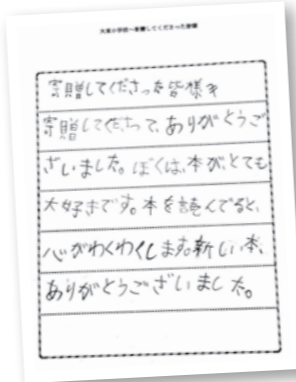 大東小学校へ寄贈してくださった皆様
寄贈してくださった皆様へ
寄贈してくださって、ありがとうご
ざいました。ぼくは、本が、とても
大好きです。本を読んでると、
心がわくわくします。新しい本、
ありがとうございました。